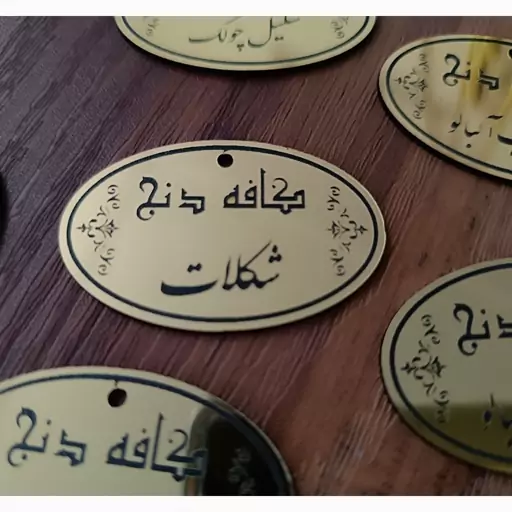 چولک
دنج
کافه دنج
شکلات
دنج
کافه دنج